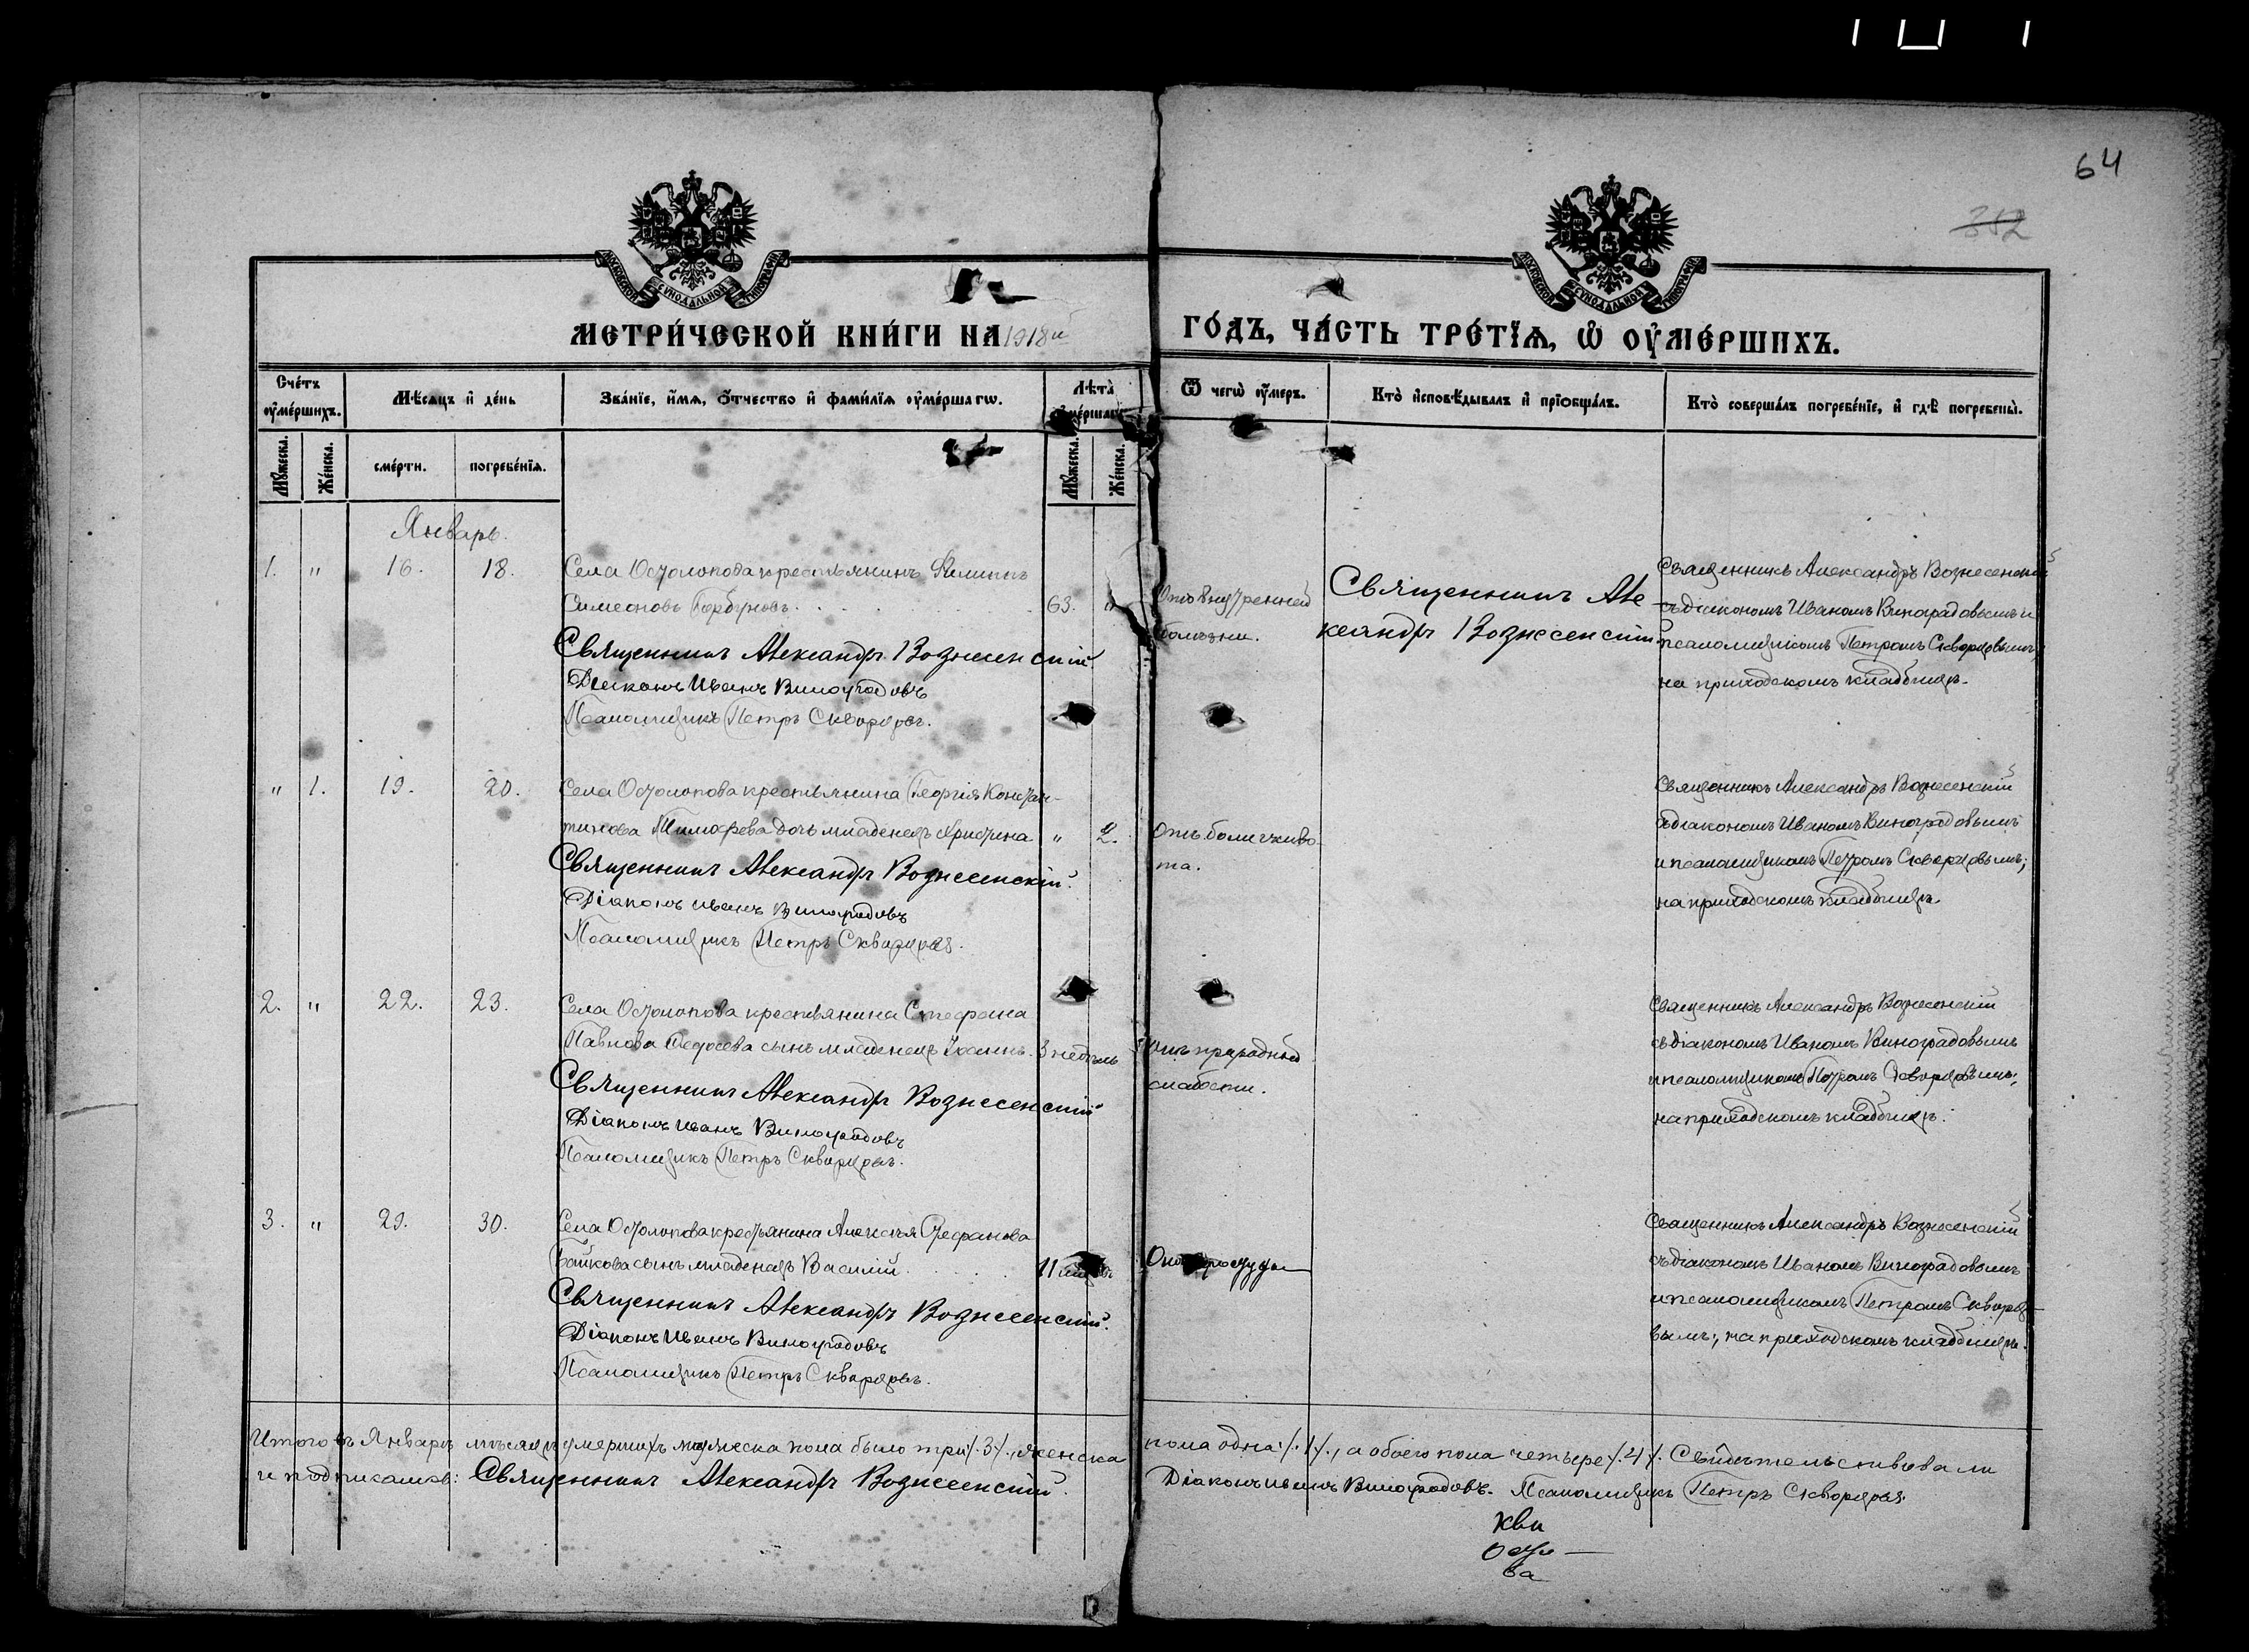 64
352
МОСКОВСКОЙ СУНОДАЛЬНОЙ ТИПОГРАФІИ
МОСКОВСКОЙ СУНОДАЛЬНОЙ ТИПОГРАФІИ
МЕТРИ́ЧЕСКОЙ КНИ́ГИ НА 1918й ГО́ДЪ, ЧА́СТЬ ТРЕ́ТЇѦ, Ѡ҆ ОУ҆МЕ́РШИХЪ.
Сче́тъ оу҆ме́ршихъ.
Мѣ́сѧцъ и҆ де́нь
Зва́нїе, и҆́мѧ, ѻ҆́тчество и҆ фами́лїѧ оу҆ме́ршагѡ.
Лѣта̀ оу҆ме́ршагѡ
Ѿ чегѡ̀ оу҆́меръ.
Кто̀ и҆сповѣ́дывалъ и҆ прїѡбща́лъ.
Кто̀ соверша́лъ погребе́нїе, и҆ гдѣ̀ погребены̀.
Мꙋ́жеска. Же́нска. сме́рти. погребе́нїѧ. Мꙋ́жеска. Же́нска.
Январь.
1. " 16. 18. Села Остолопова крестьянинъ Филиппъ
Симеоновъ Горбуновъ. 63. "
Священникъ Александръ Вознесенскій
Діаконъ Иванъ Виноградовъ
Псаломщикъ Петръ Скворцовъ.
Отъ внутренней
болѣзни.
Священникъ Але-
ксандръ Вознесенскій
Священникъ Александръ Вознесенскій
съ діакономъ Иваномъ Виноградовымъ и
псаломщикомъ Петромъ Скворцовымъ;
на приходскомъ кладбищѣ.
" 1. 19. 20. Села Остолопова крестьянина Георгія Констан-
тинова Тимофеева дочь младенецъ Христина " 2.
Священникъ Александръ Вознесенскій.
Діаконъ Иванъ Виноградовъ
Псаломщикъ Петръ Скворцовъ.
Отъ боли живо-
та.
Священникъ Александръ Вознесенскій
съ діакономъ Иваномъ Виноградовымъ
и псаломщикомъ Петромъ Скворцовымъ;
на приходскомъ кладбищѣ.
2. " 22. 23. Села Остолопова крестьянина Стефана
Павлова Федосеева сынъ младенецъ Іоаннъ. 3 недѣль
Священникъ Александръ Вознесенскій
Діаконъ Иванъ Виноградовъ
Псаломщикъ Петръ Скворцовъ.
Отъ природной
слабости.
Священникъ Александръ Вознесенскій
съ діакономъ Иваномъ Виноградовымъ
и псаломщикомъ Петромъ Скворцовымъ;
на приходскомъ кладбищѣ.
3. " 29. 30. Села Остолопова крестьянина Алексѣя Стефанова
Байкова сынъ младенецъ Василій. 11
Священникъ Александръ Вознесенскій.
Діаконъ Иванъ Виноградовъ
Псаломщикъ Петръ Скворцовъ.
Отъ простуды
Священникъ Александръ Вознесенскій
съ діакономъ Иваномъ Виноградовымъ
и псаломщикомъ Петромъ Скворцо-
вымъ; на приходскомъ кладбищѣ.
Итого въ Январѣ мѣсяцѣ умершихъ мужеска пола было три /.3/., женска пола одна /.1/., а обоего пола четыре /.4/. Свидѣтельствовали
и подписались: Священникъ Александръ Вознесенскій. Діаконъ Иванъ Виноградовъ. Псаломщикъ Петръ Скворцовъ.